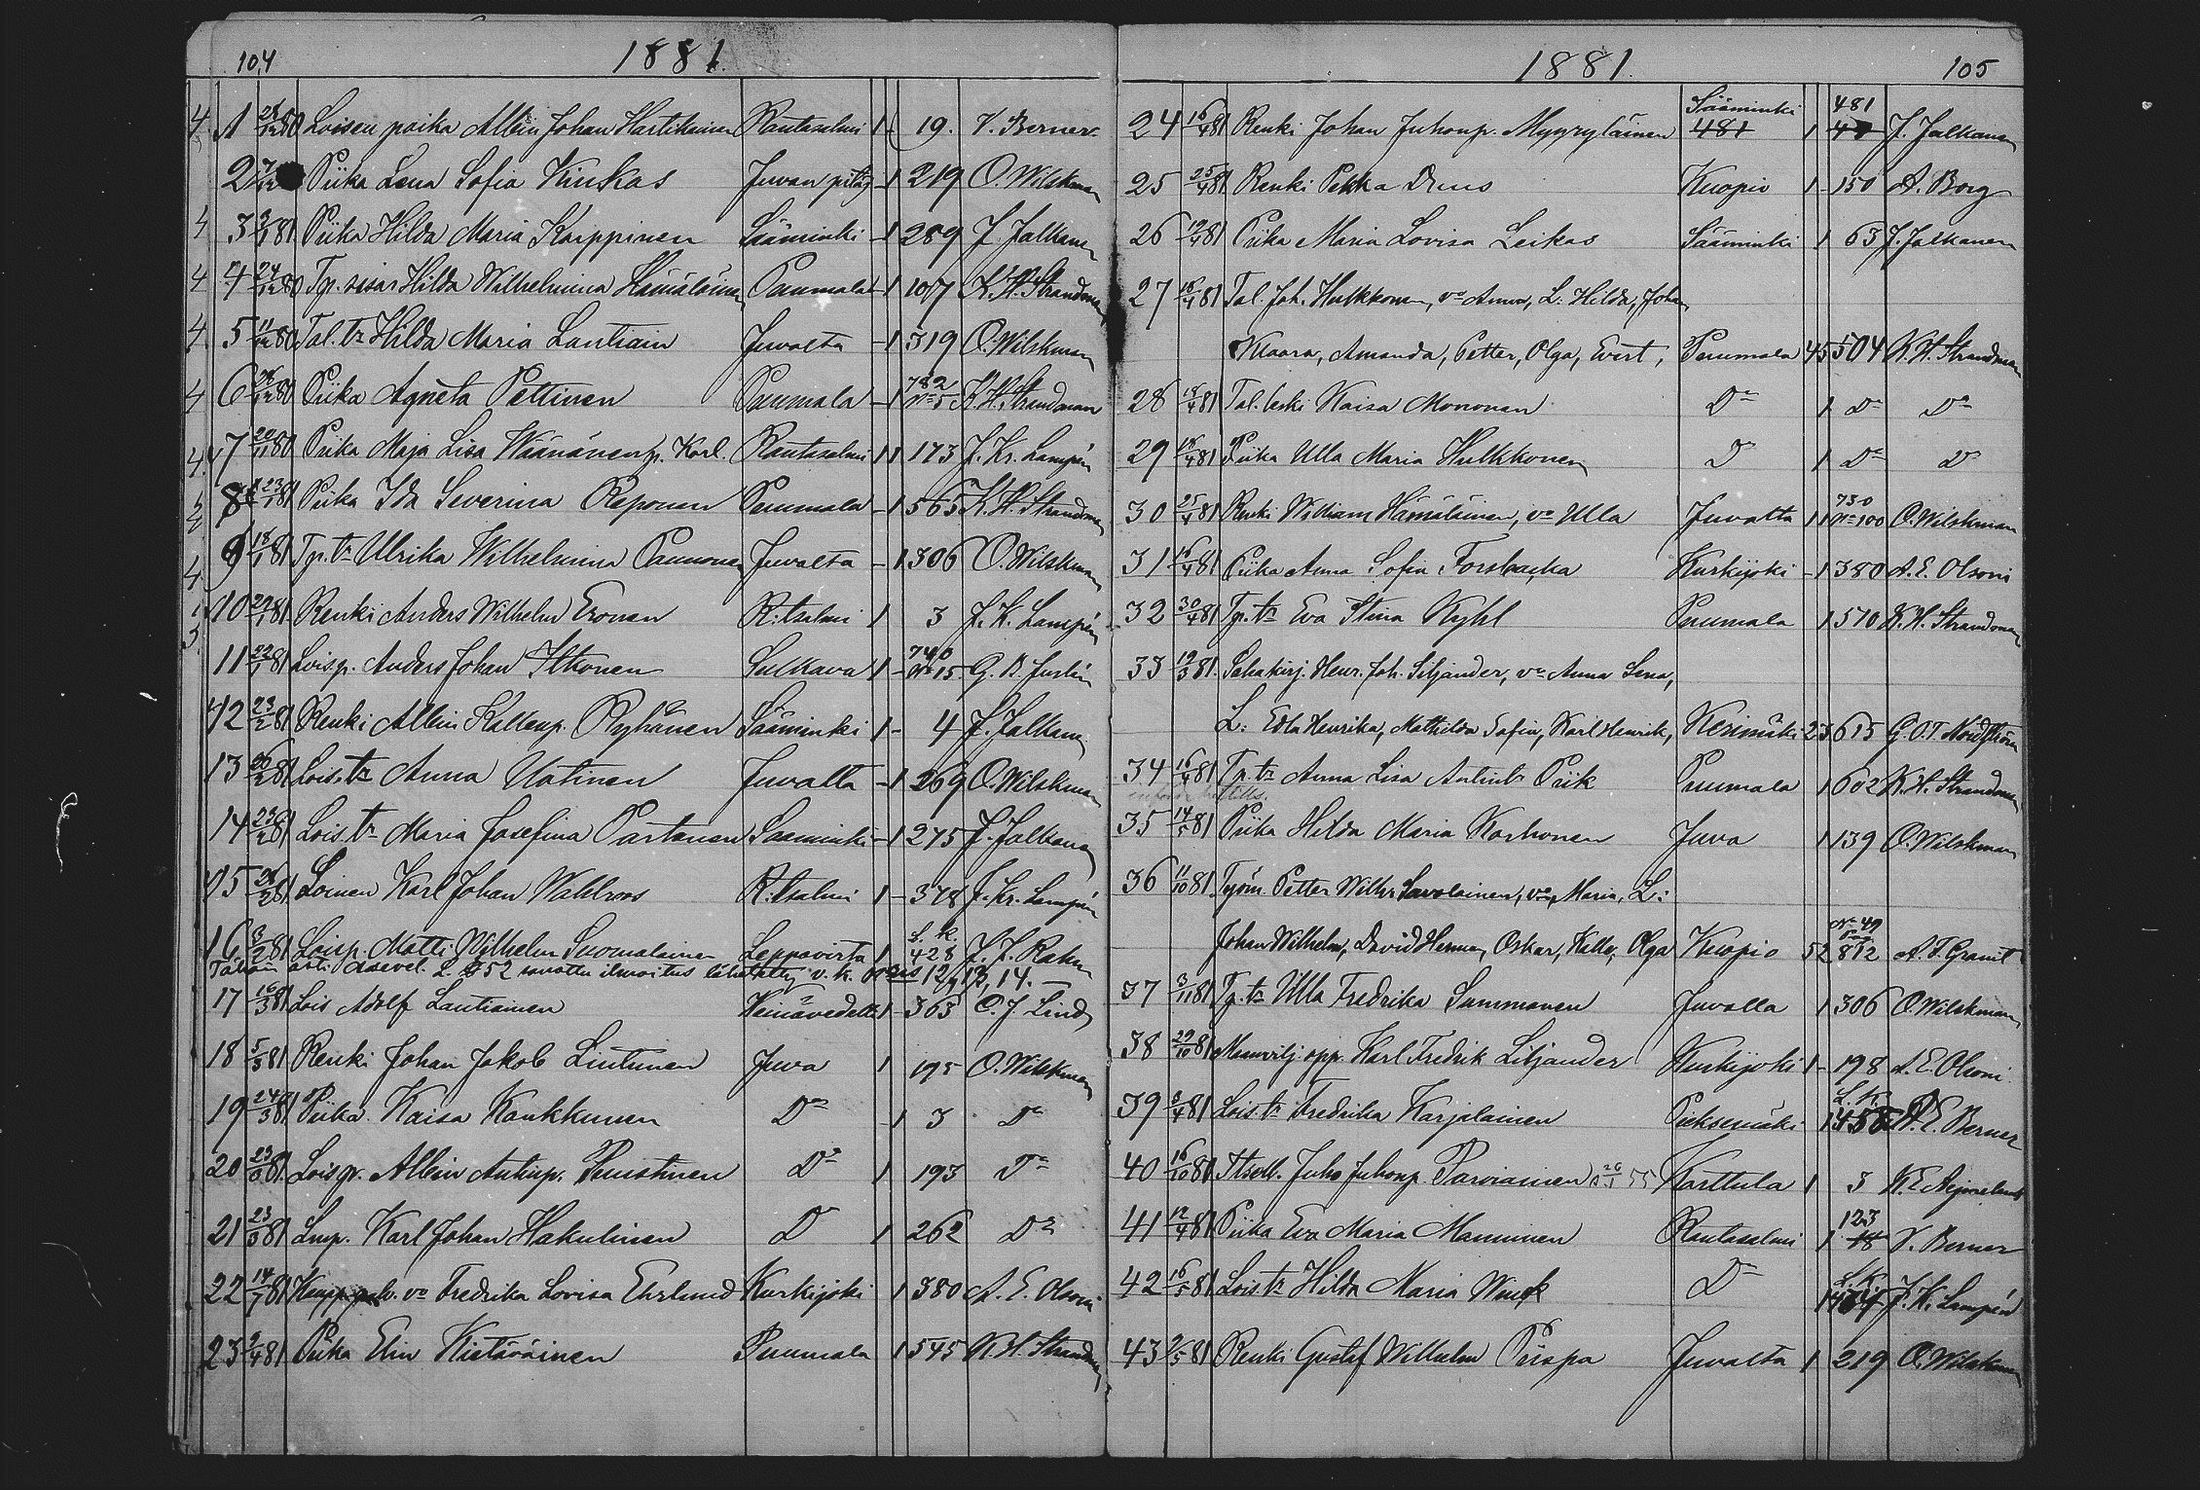 104 1881.
1 80 Loisen poika Albin Johan Hartikainen Rantasalmi 1 19. V. Berner
2 Piika Lena Sofia Kinkas Juvan pitäj 1 219 O. Wilskman
3 3/1 81 Piika Hilda Maria Karppinen Sääminki 1 289 J. Jalkanen
4 24/12 80 Tp. sisar Hilda Wilhelmina Hämäläinen Puumala 1 107 K. H. Strandman
5 11/12 80 Tal. tr Hilda Maria Lautiain Juvalta 1 319 O. Wilskman
782
6 80 Piika Agneta Pettinen Puumala 1 No 5 K. H. Strandman
7 20/11 80 Piika Maja Lisa Väänänen p. Karl. Rantasalmi 1 1 173 J. Kr. Lampén
8 23/1 81 Piika Ida Severina Reponen Puumala 1 565 K. H. Strandman
9 18/1 81 Tp. tr Ulrika Wilhelmina Paunonen Juvalta 1 306 O. Wilskman
10 29/1 81 Renki Anders Wilhelm Eronen R:tsalmi 1 3 J. K. Lampén
740
11 22/1 81 Loisp. Anders Johan Itkonen Sulkava 1 No 15 G. B. Juslén
12 23/2 81 Renki Albin Kallenp. Ryhänen Sääminki 1 4 J. Jalkanen
13 26/2 81 Lois. tr Anna Uotinen Juvalta 1 269 O. Wilskman
14 23/2 81 Lois tr Maria Josefina Partanen Saaminki 1 275 J. Jalkanen
15 26/2 81 Loinen Karl Johan Wahlroos R:tsalmi 1 378 J. Kr. Lampén
L. K.
16 3/2 81 Loisp. Matti Wilhelm Suomalainen Leppävirta 1 428 J. J. Rahm
17 16/3 81 Lois Adolf Lautiainen Heinävedeltä 1 363 O. J. Lind
18 5/3 81 Renki Johan Jakob Lintunen Juva 1 195 O. Wilskman
19 24/3 81 Piika Kaisa Kaukkunen Do 1 3 Do
20 23/3 81 Loisp. Albin Antinp. Puustinen Do 1 193 Do
21 23/3 81 Lmp. Karl Johan Hakulinen Do 1 262 Do
22 14/7 81 Kaupp. palv. vo Fredrika Lovisa Ehrlund Kurkijoki 1 380 A. E. Olsoni
23 2/4 81 Piika Elin Kietäväinen Puumala 1 545 K. H. Strandman
1881. 105
Sääminki 481
24 16/4 81 Renki Johan Juhonp. Myyryläinen 481 1 J. Jalkanen
25 25/4 81 Renki Pekka Drus Kuopio 1 150 A. Borg
26 19/4 81 Piika Maria Lovisa Leikas Sääminki 1 63 J. Jalkanen
27 16/4 81 Tal. Joh. Hulkkonen, vo Anna, L: Hilda, Johan
Klaara, Amanda, Petter, Olga, Evert, Puumala 4 5 504 K. H. Strandman
28 18/4 81 Tal. leski Kaisa Mononen Do 1 Do Do
29 16/4 81 Piika Ulla Maria Hulkkonen D 1 Do Do
730
30 25/4 81 Renki William Hämäläinen, vo Ulla Juvalta 1 1 No 100 O. Wilskman
31 16/4 81 Piika Anna Sofia Forsbacka Kurkijoki 1 380 A. E. Olsoni
32 30/4 81 Tp. tr Eva Stina Kyhl Puumala 1 570 K. H. Strandman
33 19/3 81. Sahakirj. Henr. Joh. Siljander, vo Anna Lena,
L: Edla Henrika, Mathilda Sofia, Karl Henrik, Kerimäki 2 3 615 G. O. T. Nordström
34 16/4 81 Tp. tr Anna Lisa Antintr Piik Puumala 1 602 K. H. Strandman
35 14/5 81 Piika Hilda Maria Korhonen Juva 1 139 O. Wilskman
36 11/10 81 Työm. Petter Wilh. Savolainen, vo Maria, L:
No 49
Johan Wilhelm, David Herman, Oskar, Kalle, Olga Kuopio 5 2 812 A. F. Granit
37 3/11 81 Tp. tr Ulla Fredrika Summanen Juvalla 1 306 O. Wilskman
38 29/10 81 Maanvilj. opp. Karl Fredrik Liljander Kurkijoki 1 198 A. E. Olsoni
L. K.
39 81 Lois tr Fredrika Karjalainen Pieksemäki 1 E. Berner
40 16/10 81 Itsell. Juho Juhonp. Parviainen 26/1 55 Karttula 1 3
123
41 12/4 81 Piika Eva Maria Manninen Rantasalmi 1 18 V. Berner
L. K.
42 16/5 81 Lois tr Hilda Maria Do J. K. Lampén
43 2/5 81 Renki Gustaf Wilhelm Piispa Juvalta 1 219 O. Wilskman